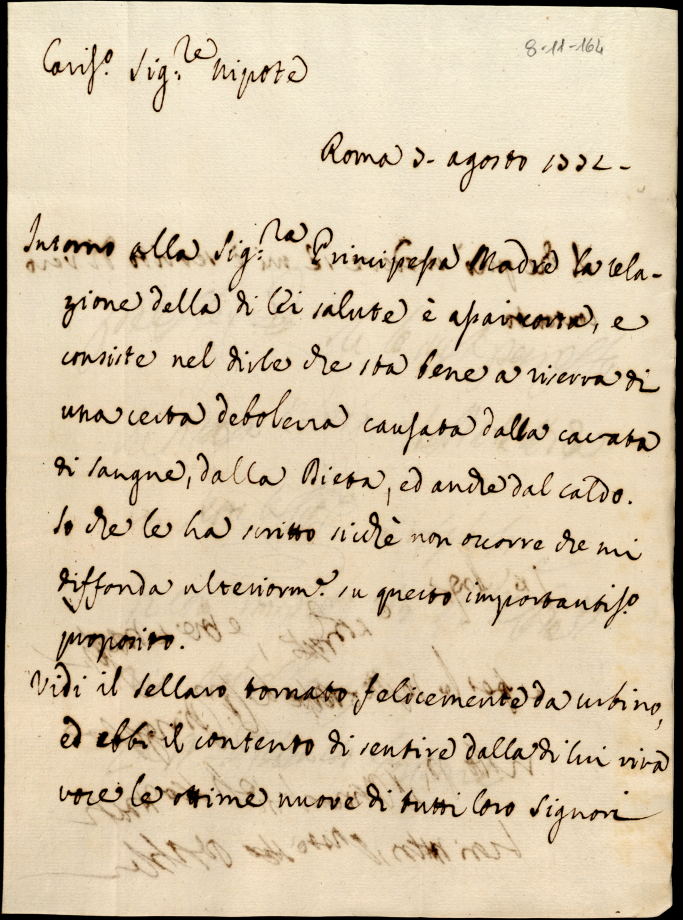 8-11-164
Cariss.o Sig.re Nipote
Roma 3. agosto 1772.
Intorno alla Sig.ra Principessa Madre la rela-
zione della di Lei salute è assai corta, e
consiste nel dirle che sta bene a riserva di
una certa debolezza causata dalla cavata
di sangue, dalla Dieta, ed anche dal caldo.
So che le ha scritto sicchè non occorre che mi
diffonda ulteriorm.e su questo importantiss.o
proposito.
Vidi il Sellaro tornato felicemente da Urbino,
ed ebbi il contento di sentire dalla di lui viva
voce le ottime nuove di tutti loro Signori